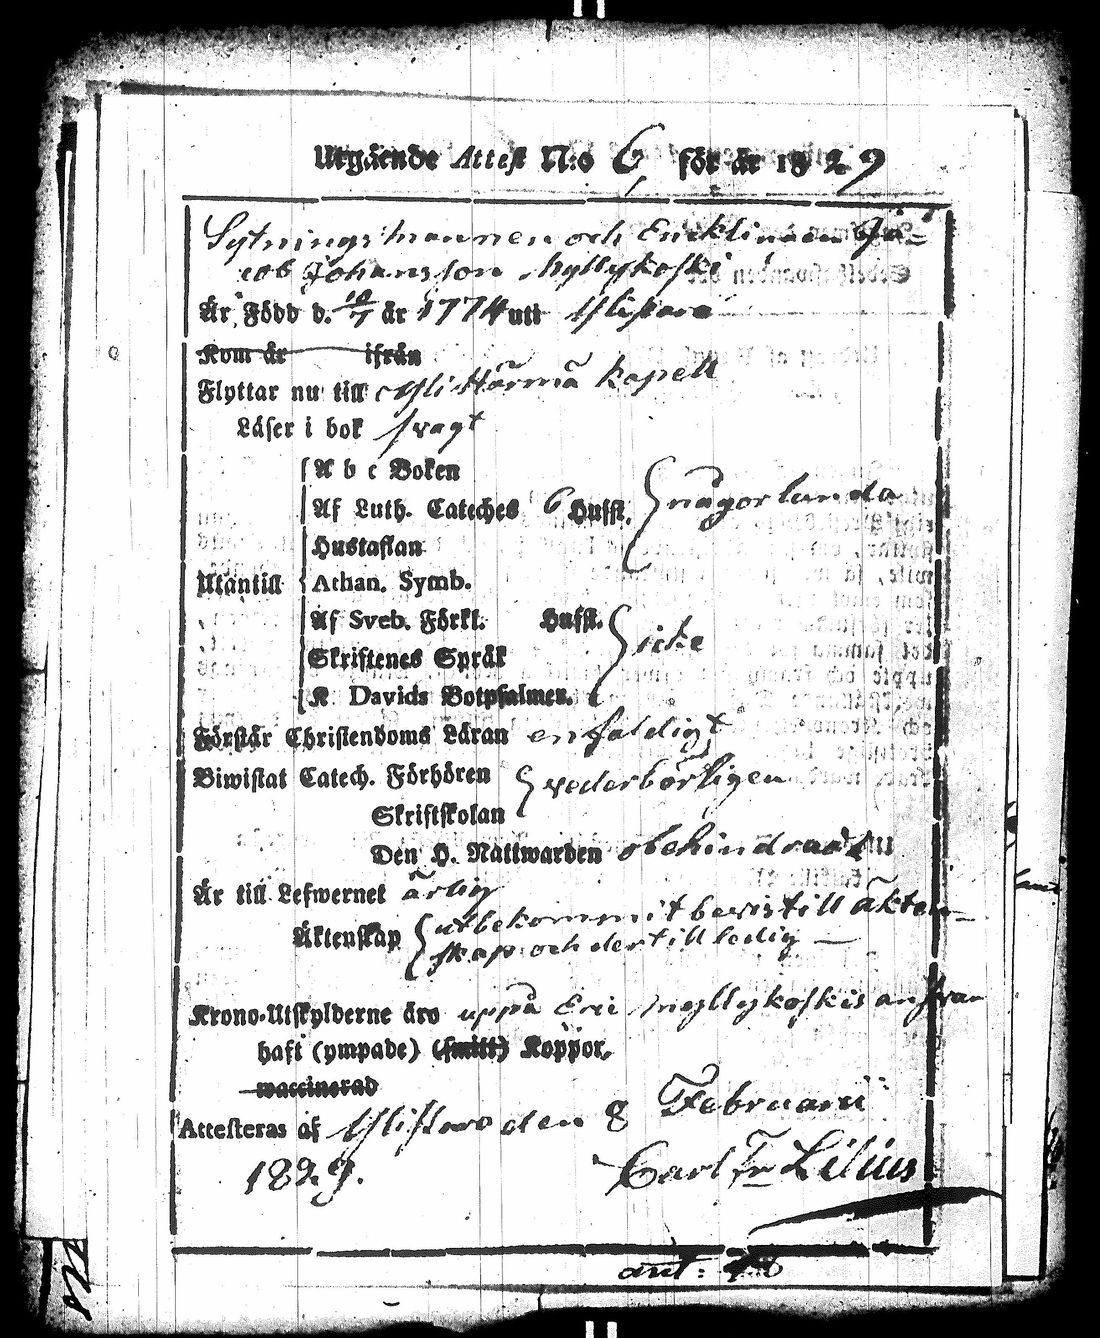 Utgående Attest N:o 6, för år 1829
Sytningsmannen och Enklingen Ja=
cob Johansson Myllykoski
Är Född d. 10/7 år 1774 uti Ylistaro
Kom år ifrån
Flyttar nu till Yli Härmä Kapell
Läser i bok svagt
A b c Boken
Af Luth. Cateches 6 Hufst. någorlunda
Hustaflan
Utantill Athan. Symb.
Af Sveb. Förkl. Hufst. icke
Skriftenes Språk
K Davids Botpsalmer.
Förstår Christendoms Läran enfaldigt
Biwistat Catech. Förhören vederbörligen
Skriftskolan
Den H. Nattwarden obehindrad
Är till Lefwernet ärlig
Äktenskap utbekommit bevis till äkten-
skap och dertill ledig —
Krono-Utskylderne äro uppå Eric Myllykoskis ansvar
haft (ympade) (smitt) Koppor.
waccinerad
Attesteras af Ylistaro den 8 Februarii
1829. Carl Fr Lilius
ant: